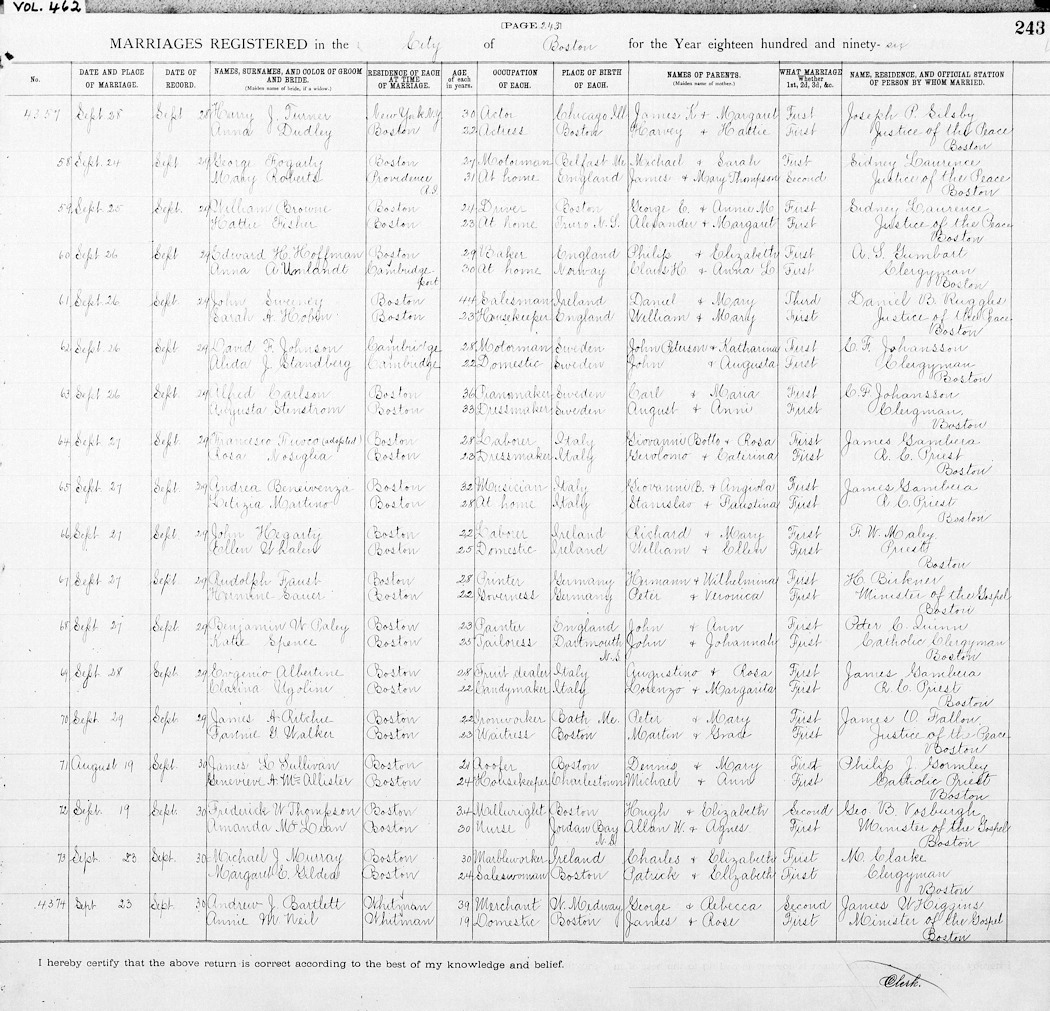 VOL. 462
(PAGE 243)
243
MARRIAGES REGISTERED in the City of Boston for the Year eighteen hundred and ninety-six
No. DATE AND PLACE OF MARRIAGE. DATE OF RECORD. NAMES, SURNAMES, AND COLOR OF GROOM AND BRIDE. (Maiden name of bride, if a widow.) RESIDENCE OF EACH AT TIME OF MARRIAGE. AGE of each in years. OCCUPATION OF EACH. PLACE OF BIRTH OF EACH. NAMES OF PARENTS. (Maiden name of mother.) WHAT MARRIAGE Whether 1st, 2d, 3d, &c. NAME, RESIDENCE, AND OFFICIAL STATION OF PERSON BY WHOM MARRIED.
4357 Sept 28 Sept 28 Harry J. Turner New York N.Y. 30 Actor Chicago Ill James K & Margaret First Joseph P. Silsby
Anna Dudley Boston 22 Actress Boston Harvey & Hattie First Justice of the Peace
Boston
58 Sept. 24 Sept 29 George Fogarty Boston 27 Motorman Belfast Me Michael & Sarah First Sidney Laurence
Mary Roberts Providence 31 At home England James & Mary Thompson Second Justice of the Peace
R.I. Boston
59 Sept. 25 Sept. 29 William Browne Boston 24 Driver Boston George E. & Annie M First Sidney Laurence
Hattie Fisher Boston 23 At home Truro N.S. Alexander & Margaret First Justice of the Peace
Boston
60 Sept 26 Sept 29 Edward H. Hoffman Boston 29 Baker England Philip & Elizabeth First A. S. Gumbart
Anna A Umlandt Cambridge 30 At home Norway Claus H & Anna L First Clergyman
port Boston
61 Sept 26 Sept 29 John Sweeney Boston 44 Salesman Ireland Daniel & Mary Third Daniel B. Ruggles
Sarah A Boston 23 Housekeeper England William & Mary First Justice of the Peace
Boston
62 Sept. 26 Sept 29 David F Johnson Cambridge 28 Motorman Sweden John Peterson & Katharina First C. F. Johansson
Alida J Strindberg Cambridge 22 Domestic Sweden John & Augusta First Clergyman
Boston
63 Sept 26 Sept 29 Alfred Carlson Boston 36 Pianomaker Sweden Carl & Maria First C. F. Johansson
Augusta Stenstrom Boston 33 Dressmaker Sweden August & Anni First Clergyman,
Boston
64 Sept 27 Sept 29 Francesco (adopted) Boston 28 Laborer Italy Giovanni Botto & Rosa First James Gambera
Rosa Nosiglia Boston 23 Dressmaker Italy Gerolomo & Caterina First R. C. Priest
Boston
65 Sept. 27 Sept 29 Andrea Bencivenza Boston 32 Musician Italy Giovanni B. & Angiola First James Gambera
Letizia Martino Boston 28 At home Italy Stanislao & Faustina First R. C. Priest
Boston
66 Sept. 27 Sept 29 John Hegarty Boston 22 Laborer Ireland Richard & Mary First F. W. Maley
Ellen Whalen Boston 25 Domestic Ireland William & Ellen First Priest
Boston
67 Sept 27 Sept 29 Rudolph Faust Boston 28 Printer Germany Hermann & Wilhelmina First H. Birkner
Hermine Sauer Boston 22 Governess Germany Peter & Veronica First Minister of the Gospel
Boston
68 Sept. 27 Sept. 29 Benjamin W Paley Boston 23 Painter England John & Ann First Peter C. Quinn
Katie Spence Boston 25 Tailoress Dartmouth John & Johannah First Catholic Clergyman
N.S. Boston
69 Sept. 28 Sept. 29 Eugenio Albertine Boston 28 Fruit dealer Italy Augustino & Rosa First James Gambera
Clarina Ugolini Boston 22 Candymaker Italy Lorenzo & Margarita First R. C. Priest
Boston
70 Sept. 29 Sept. 29 James A. Ritchie Boston 22 Ironworker Bath Me. Peter & Mary First James W. Fallon
Fannie G Walker Boston 23 Waitress Boston Martin & Grace First Justice of the Peace
Boston
71 August 19 Sept. 30 James L Sullivan Boston 21 Roofer Boston Dennis & Mary First Philip J. Gormley
Genevieve A. McAllister Boston 24 Housekeeper Charlestown Michael & Ann First Catholic Priest
Boston
72 Sept. 19 Sept. 30 Frederick W Thompson Boston 34 Millwright Boston Hugh & Elizabeth Second Geo. B. Vosburgh
Amanda McLean Boston 30 Nurse Jordan Bay Allan W. & Agnes First Minister of the Gospel
N.S. Boston
73 Sept. 23 Sept. 30 Michael J Murray Boston 30 Marbleworker Ireland Charles & Elizabeth First M. Clarke
Margaret E. Gildea Boston 24 Saleswoman Boston Patrick & Elizabeth First Clergyman
Boston
4374 Sept 23 Sept. 30 Andrew J Bartlett Whitman 39 Merchant W. Medway George & Rebecca Second James W Higgins
Annie M Neil Whitman 19 Domestic Boston James & Rose First Minister of the Gospel
Boston
I hereby certify that the above return is correct according to the best of my knowledge and belief.
Clerk.